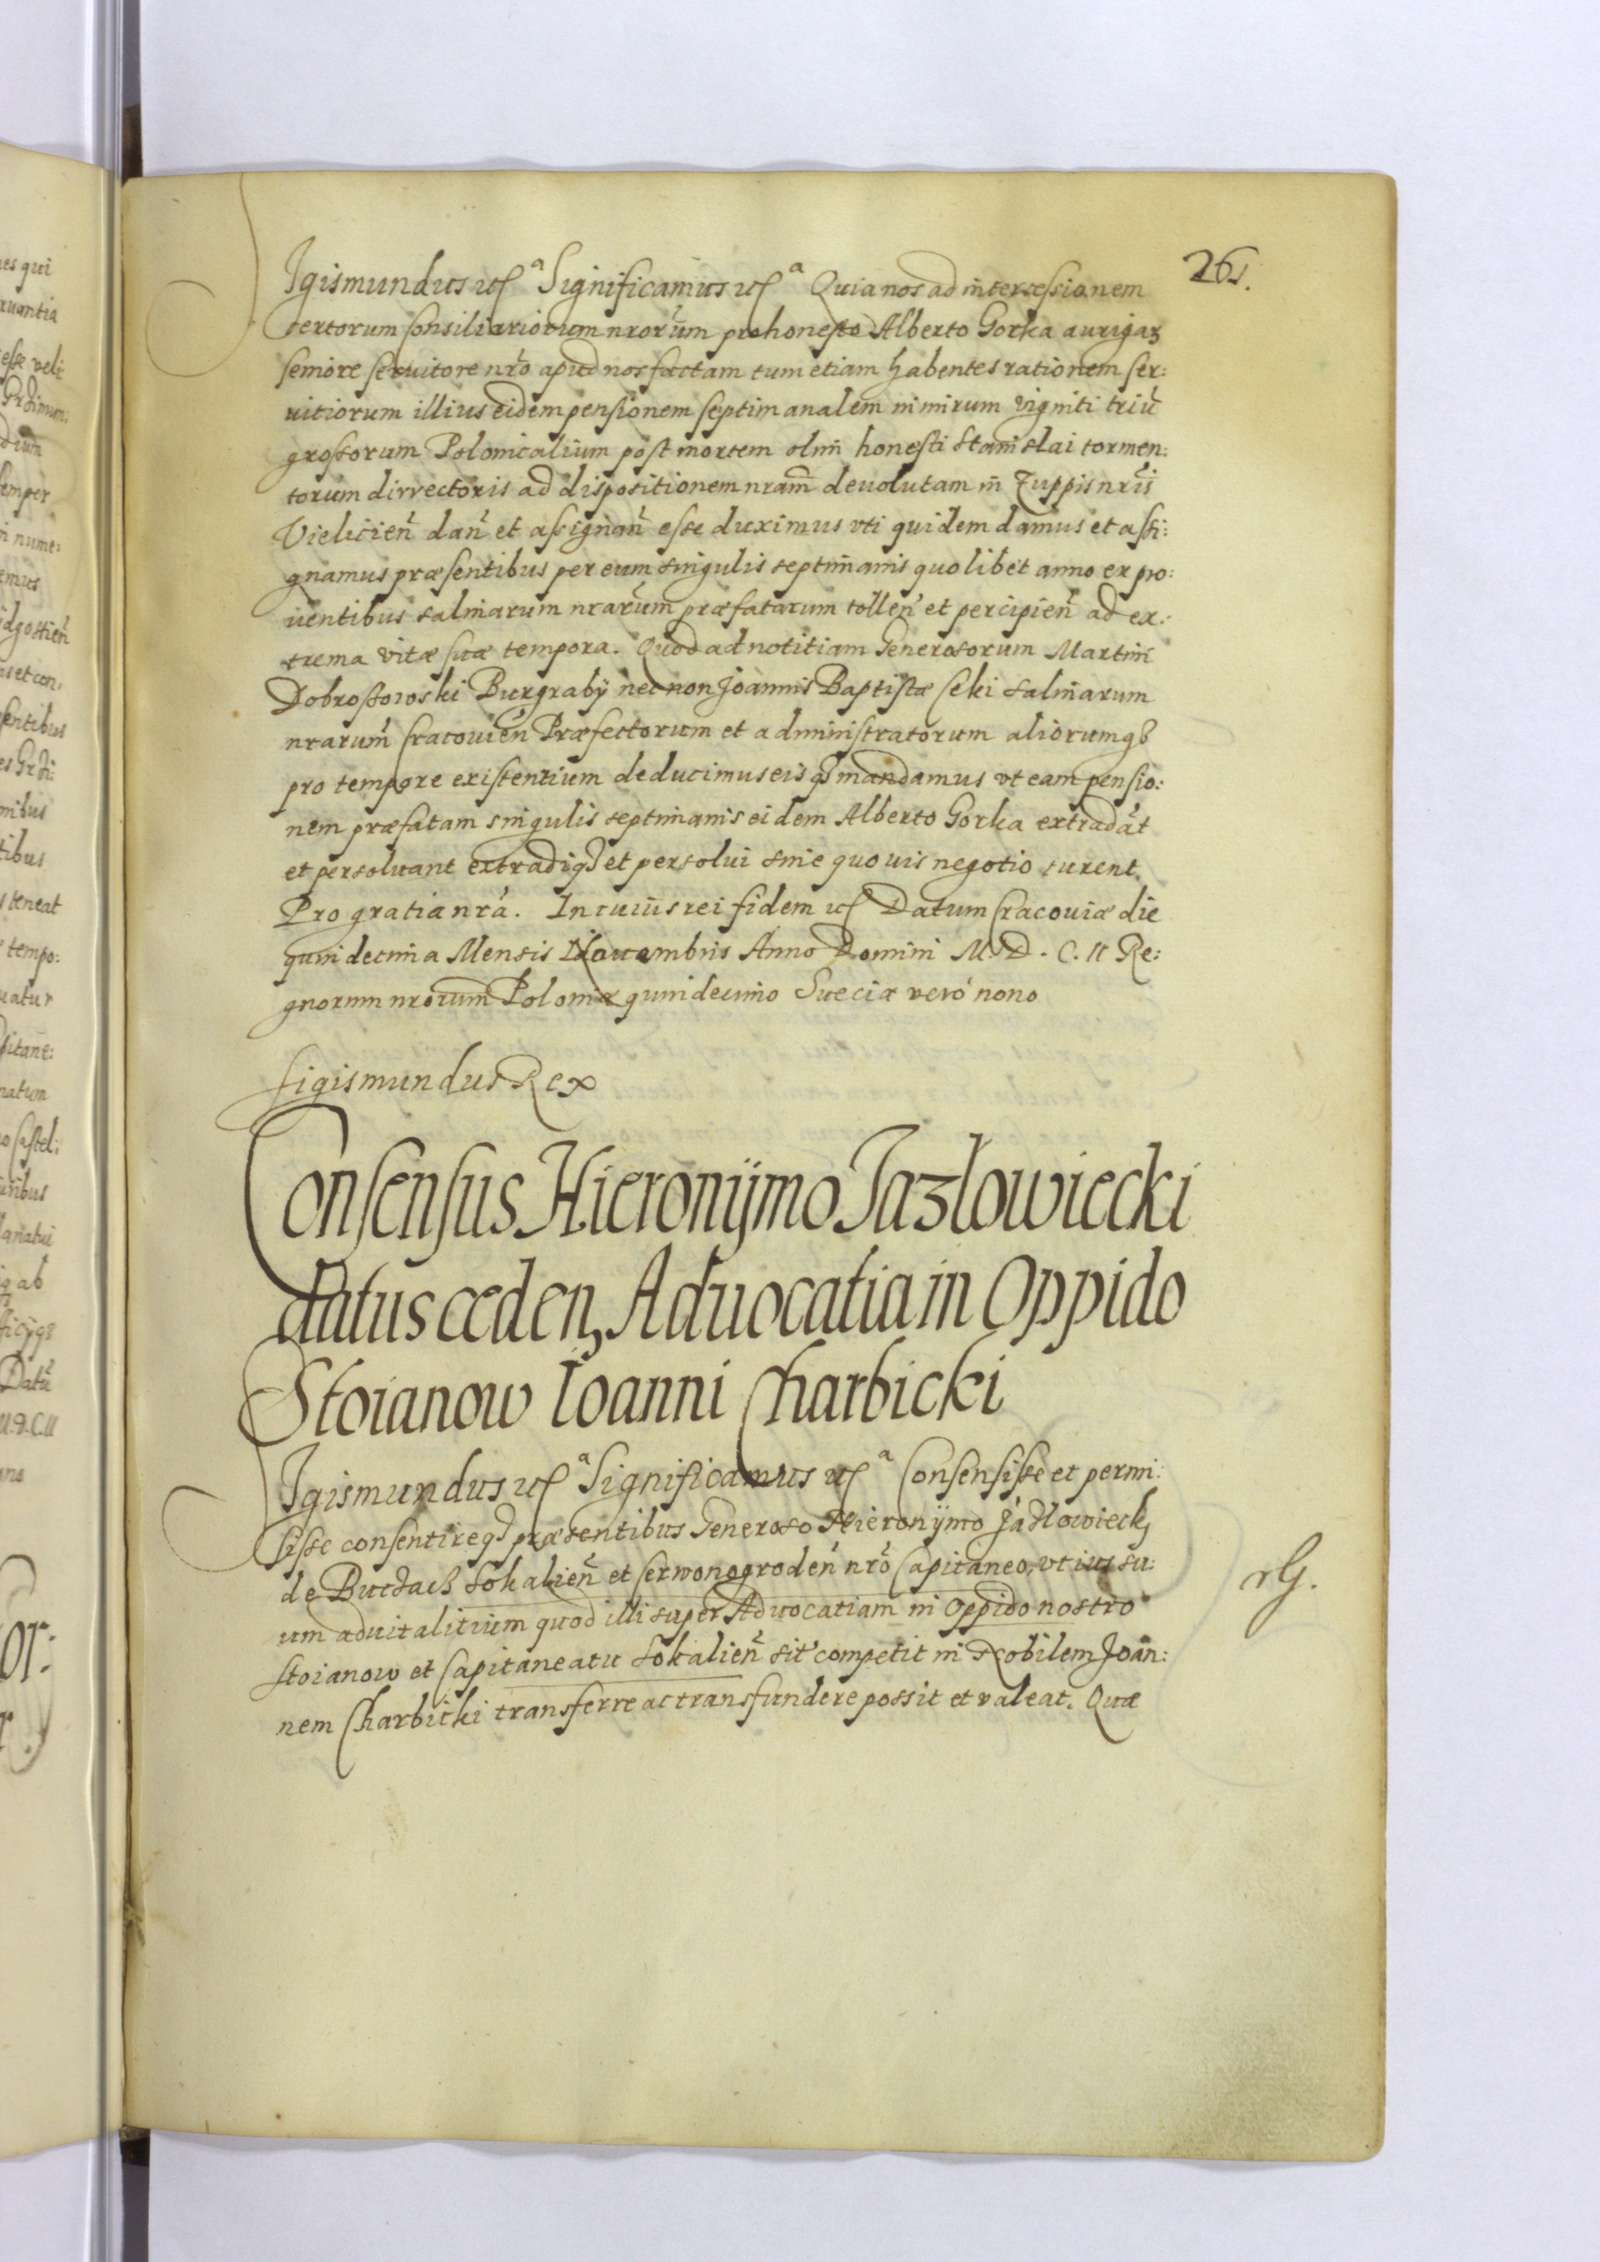 261.
Sigismundus etc a Significamus etc a Quia nos ad intercessionem
certorum Consiliariorum nrorum pro honesto Alberto Gorka auriga
seniore seruitore nro apud nos factam tum etiam habentes rationem ser:
uitiorum illius eidem pensionem septimanalem nimirum viginti triu
grossorum Polonicalium post mortem olim honesti Stanislai tormen:
torum dirrectoris ad dispositionem nram deuolutam in Zuppis nris
Vielicien dan et assignan esse duximus vti quidem damus et assi:
gnamus præsentibus per eum singulis septimanis quolibet anno ex pro:
uentibus salinarum nrarum præfatarum tollen et percipien ad ex:
trema vitæ suæ tempora. Quod ad notitiam Generosorum Martini
Dobrostowski Burgraby nec non Joannis Baptistæ Ceki salinarum
nrarum Cracouien Præfectorum et administratorum aliorumq3
pro tempore existentium deducimus eisq3 mandamus vt eam pensio:
nem præfatam singulis septimanis eidem Alberto Gorka extradat
et persoluant extradiq3 et persolui sine quouis negotio curent.
Pro gratia nra. In cuius rei fidem etc Datum Cracouiæ die
quindecima Mensis Nouembris Anno Domini M.D.C.II Re:
gnorum nrorum Poloniæ quindecimo Sueciæ vero nono
Sigismundus Rex
Consensus Hieronÿmo Jazłowiecki
datus ceden, Aduocatia in Oppido
Stoianow Ioanni Charbicki
Sigismundus etc a Significamus etc a Consensisse et permi:
sisse consentireq3 præsentibus Generoso Hieronÿmo Jazlowiecki
de Buczacz Sokalien et Cerwonogroden nro Capitaneo, vt ius su:
um aduitalitium quod illi super Aduocatiam in Oppido nostro
Stoianow et Capitaneatu Sokalien sit competit in Nobilem Joan:
nem Charbicki transferre ac transfundere possit et valeat. Quæ
rG.